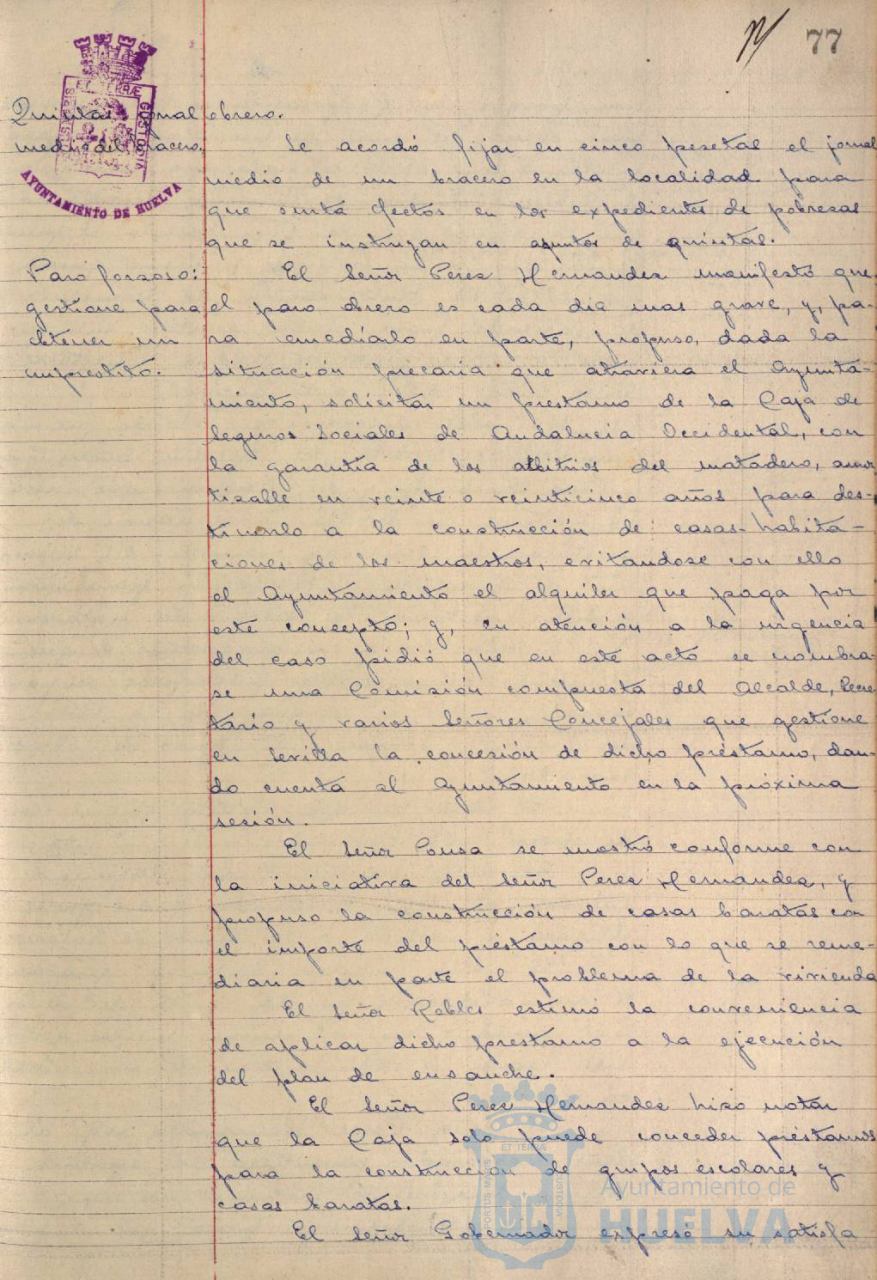 77
Quintas jornal
medio del bracero.
AYUNTAMIENTO DE HUELVA
obrero.
Se acordó fijar en cinco pesetas el jornal
medio de un bracero en la localidad para
que surta efectos en los expedientes de pobresas
que se instruyan en asuntos de quintas.
Paro forzoso:
gestione para
obtener un
emprestito.
El Señor Perez Hernandez manifestó que
el paro obrero es cada dia mas grave, y, pa-
ra remediarlo en parte, propuso, dada la
situación precaria que atraviesa el Ayunta-
miento, solicitar un prestamo de la Caja de
Seguros Sociales de Andalucia Occidental, con
la garantía de los arbitrios del matadero, amor
tizable en veinte o veinticinco años para des-
tinarlo a la construcción de casas-habita-
ciones de los maestros, evitandose con ello
el Ayuntamiento el alquiler que paga por
este concepto; y, en atención a la urgencia
del caso pidió que en este acto se nombra-
se una Comisión compuesta del Alcalde, Secre-
tario y varios Señores Concejales que gestione
en Sevilla la concesión de dicho préstamo, dan-
do cuenta al Ayuntamiento en la próxima
sesión.
El Señor Ponsa se mostró conforme con
la iniciativa del Señor Perez Hernandez, y
propuso la construcción de casas baratas con
el importe del préstamo con lo que se reme-
diaria en parte el problema de la vivienda
El Señor Robles estimó la conveniencia
de aplicar dicho prestamo a la ejecución
del plan de ensanche.
El Señor Perez Hernandez hizo notar
que la Caja solo puede conceder préstamos
para la construcción de grupos escolares y
casas baratas.
El Señor Gobernador expresó su satisfa
Ayuntamiento de
HUELVA